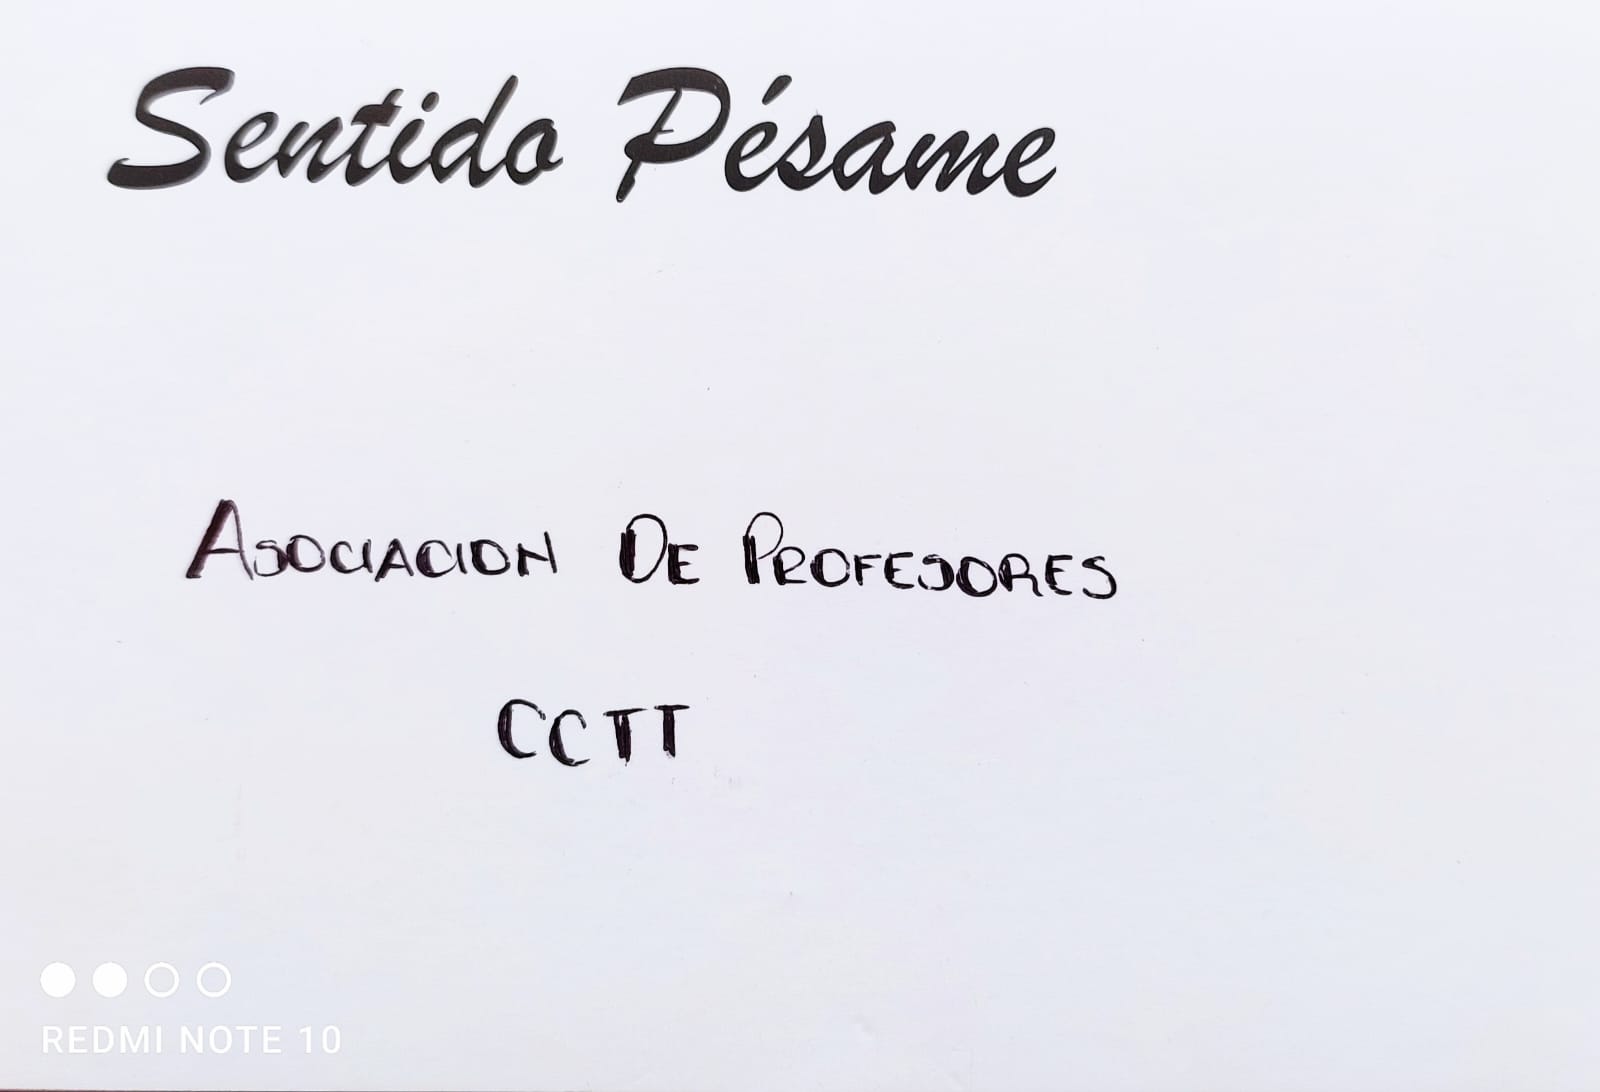 Sentido Pésame
ASOCIACION DE PROFESORES
CCTT
REDMI NOTE 10